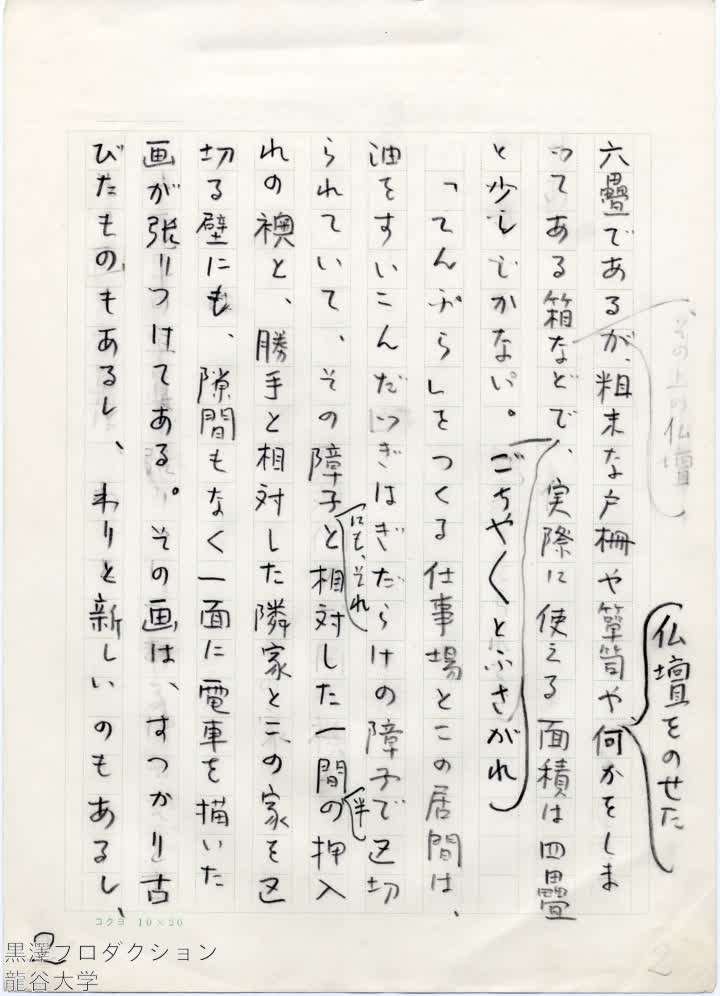 六疊であるが、粗末な戸棚や箪笥や何かをしま
仏壇をのせた
その上の仏壇
つてある箱などで、実際に使える面積は四疊
ごちやくとふさがれ
と少ししかない。
「てんぷら」をつくる仕事場とこの居間は、
油をすいこんだつぎはぎだらけの障子で区切
られていて、その障子と相対した一間の押入
にも、それ
半
れの襖と、勝手と相対した隣家とこの家を区
切る壁にも、隙間もなく一面に電車を描いた
画が張りつけてある。その画は、すつかり古
びたものもあるし、わりと新しいのもあるし、
コクヨ 10×20
2
2
黒澤プロダクション
龍谷大学